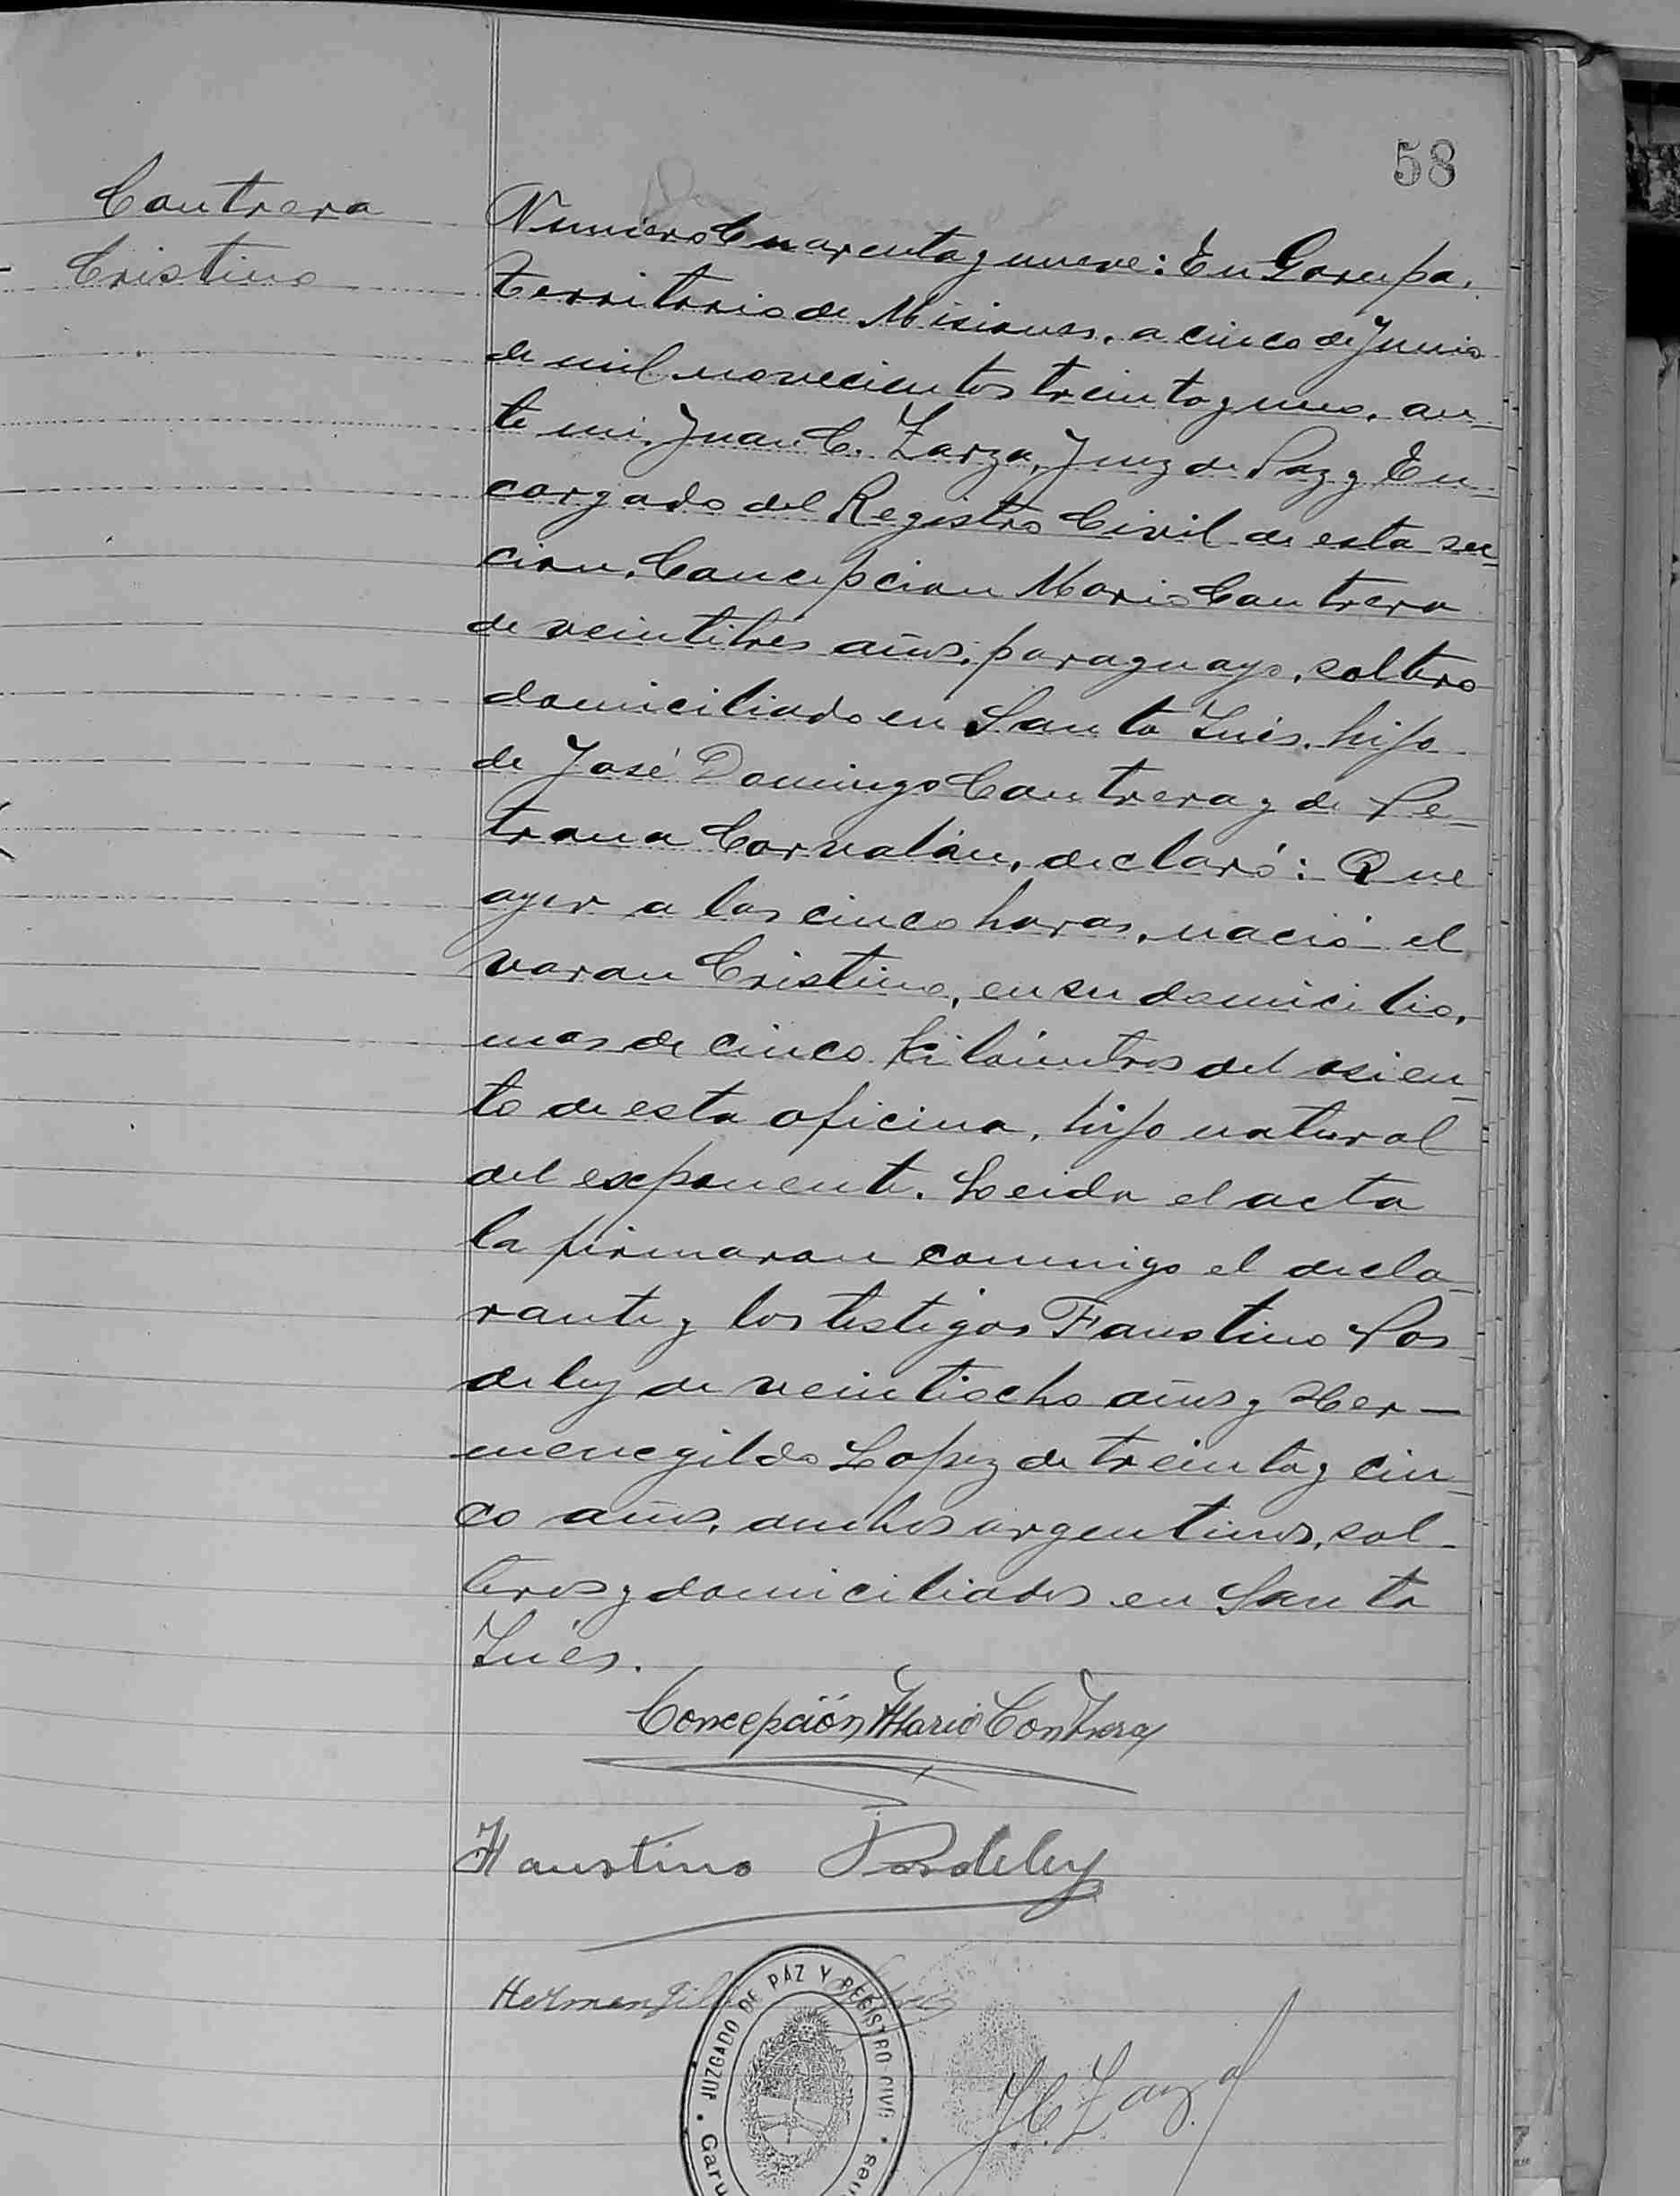 58
Contrera
Cristino
Numero Cuarenta y nueve: En Garupa,
Territorio de Misiones, a cinco de Junio
de mil novecientos treinta y uno, an-
te mi, Juan C. Zarza, Juez de Paz y En-
cargado del Registro Civil de esta sec-
cion, Concepcion Mario Contrera
de veintitrés años, paraguayo, soltero
domiciliado en Santa Inés, hijo
de José Domingo Contrera y de Pe-
trona Corvalán, declaró: Que
ayer a las cinco horas, nació el
varon Cristino, en su domicilio,
mas de cinco kilómetros del asien-
to de esta oficina, hijo natural
del exponente. Leida el acta
la firmaron conmigo el decla-
rante y los testigos Faustino Pos-
deley de veintiocho años y Her-
menegildo Lopez de treinta y cin-
co años, ambos argentinos, sol-
teros y domiciliados en Santa
Inés.
Concepción Mario Contrera
Faustino Posdeley
JUZGADO DE PAZ Y REGISTRO CIVIL
J.C. Zarza